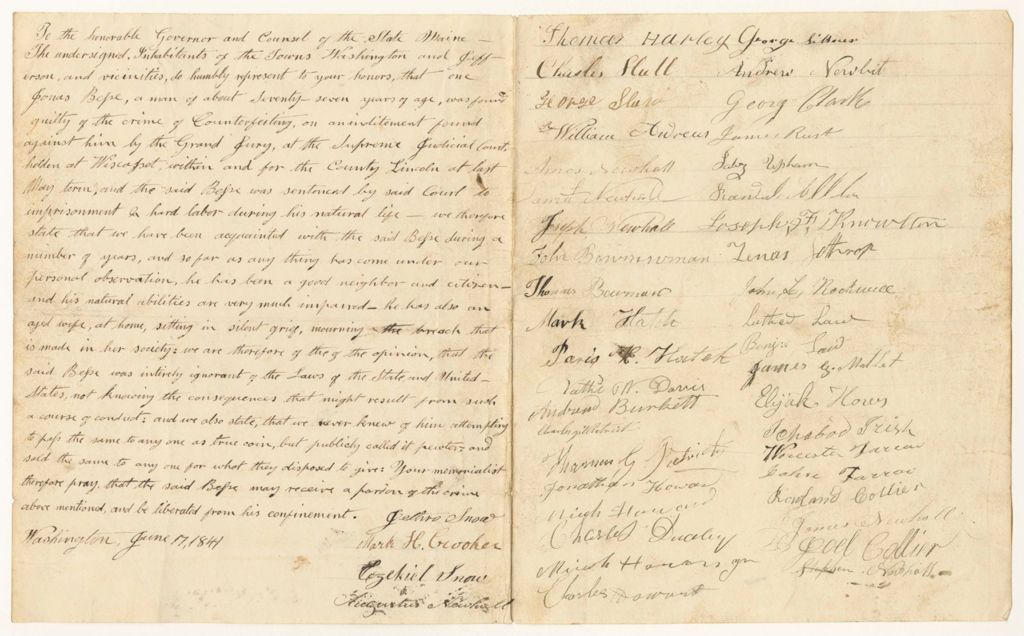 To the honorable Governor and Counsel of the State Maine —
The undersigned, Inhabitants of the Towns Washington and Jeff
erson, and vicinities, do humbly represent to your honors, that one
Jonas Besse, a man of about Seventy seven years of age, was found
guilty of the crime of Counterfeiting, on an inditement found
against him by the Grand Jury, at the Supreme Judicial Court
holden at Wiscasset, within and for the County Lincoln at last
May term, and the said Besse was sentenced by said Court to
imprisonment & hard labor during his natural life — we therefore
state that we have been acquainted with the said Besse during a
number of years, and so far as any thing has come under our
personal observation, he has been a good neighbor and citizen —
and his natural abilities are very much impaired — he has also an
aged wife, at home, sitting in silent grief, mourning the breach that
is made in her society: we are therefore of the opinion, that the
said Besse was intirely ignorant of the Laws of the State and United
States, not knowing the consequences that might result from such
a course of conduct: and we also state, that we never knew of him attempting
to pass the same to any one as true coin, but publicly called it pewter: and
sold the same to any one for what they disposed to give: Your memorialist
therefore pray, that the said Besse may receive a pardon of the crime
above mentioned, and be liberated from his confinement.
Jethro Snow
Washington, June 17, 1841
Mark H. Crooker
Ezekiel Snow
Augustus Newhall
Thomas Harley George
Charles Hull Andrew Newbit
George Georg Clark
William Andrews James Rust
Amos Newhall Upham
James Newhall
Joseph Newhall Joseph F. Knowlton
John Zenas Lothrop
Thomas Bowman John
Mark Hatch Luther Law
Paris Law
James
Nathl W. Davis
Andrew Burkett Elijah Howes
Ichabod Irish
Worcester Farrar
Jonathan Howard John Farrar
Micah Howard Rowland Collier
James Newhall
Charles Joel Collier
Micah Howard jr Newhall
Charles Howard